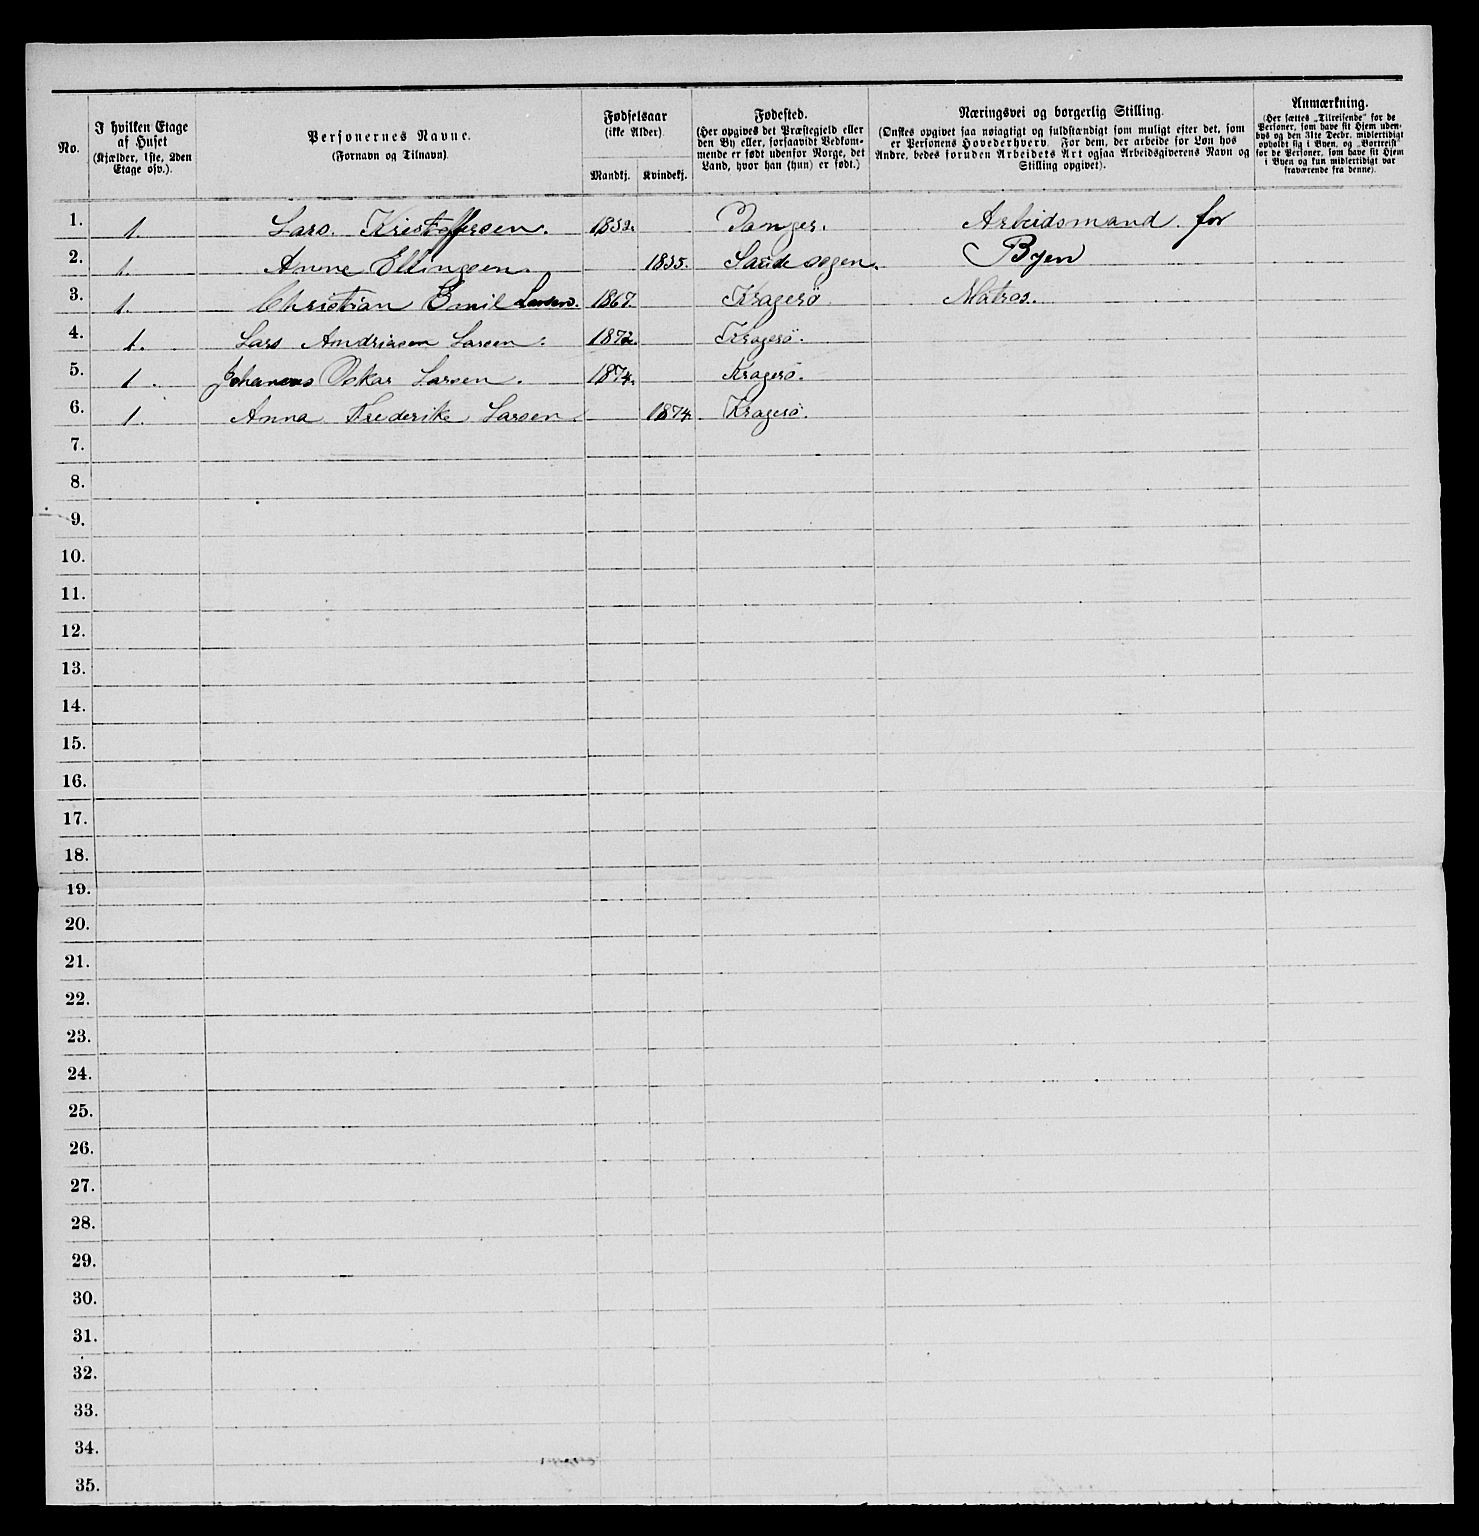 No.
I hvilken Etage af Huset (Kjælder, 1ste, 2den Etage osv.).
Personernes Navne. (Fornavn og Tilnavn)
Fødselsaar (ikke Alder).
Mandkj. Kvindekj.
Fødested. (Her opgives det Præstegjeld eller den By eller, forsaavidt Vedkommende er født udenfor Norge, det Land, hvor han (hun) er født.)
Næringsvei og borgerlig Stilling. (Ønskes opgivet saa nøiagtigt og fuldstændigt som muligt efter det, som er Personens Hovederhverv. For dem, der arbeide for Løn hos Andre, bedes foruden Arbeidets Art ogsaa Arbeidsgiverens Navn og Stilling opgivet).
Anmærkning. (Her sættes „Tilreisende“ for de Personer, som have sit Hjem udenbys og den 31te Decbr. midlertidigt opholdt sig i Byen, og „Bortreist“ for de Personer, som have sit Hjem i Byen og kun midlertidigt var fraværende fra denne).
1. 1. Lars. Kristoffersen. 1832. Arbeidsmand for
2. 1. Anne Ellingsen. 1835. Saude sogen. Byen
3. 1. Christian Emil Larsen. 1867. Kragerö Matros.
4. 1. Lars Andriasen Larsen. 1872. Kragerö.
5. 1. Johannes Oskar Larsen. 1874. Kragerö.
6. 1. Anna Frederike Larsen. 1874. Kragerö.
7.
8.
9.
10.
11.
12.
13.
14.
15.
16.
17.
18.
19.
20.
21.
22.
23.
24.
25.
26.
27.
28.
29.
30.
31.
32.
33.
34.
35.